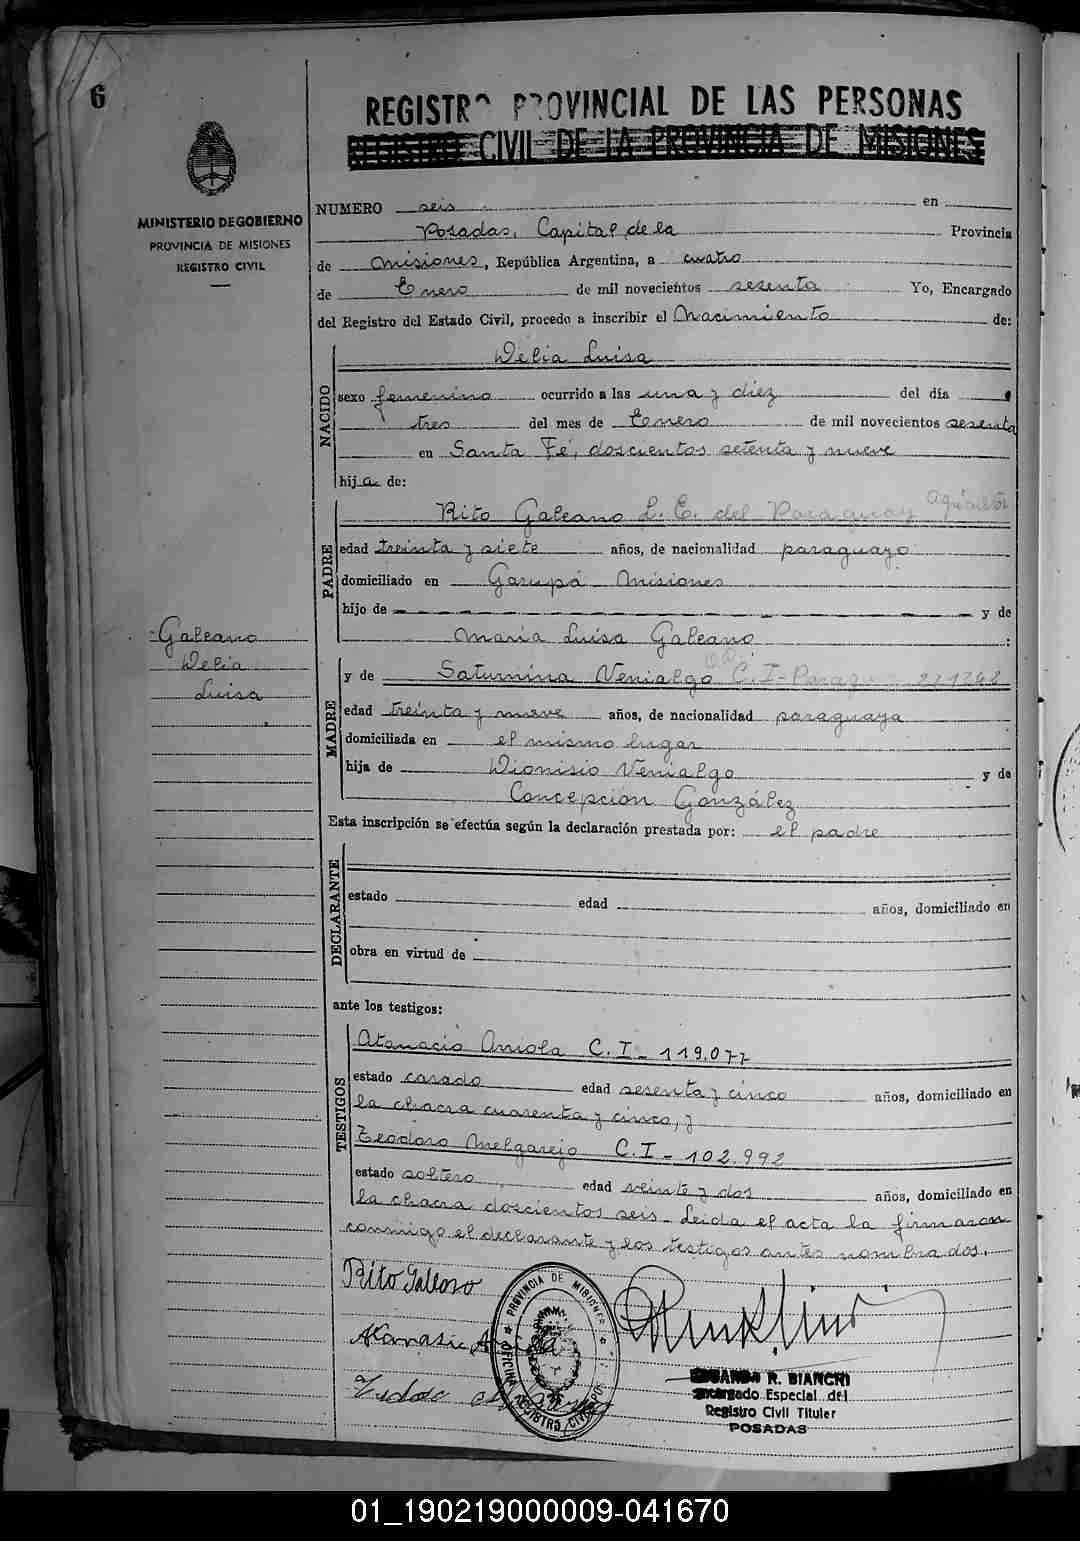 6
REGISTRO PROVINCIAL DE LAS PERSONAS
REGISTRO CIVIL DE LA PROVINCIA DE MISIONES
MINISTERIO DE GOBIERNO
PROVINCIA DE MISIONES
REGISTRO CIVIL
NUMERO seis en
Posadas, Capital de la Provincia
de Misiones, República Argentina, a cuatro
de Enero de mil novecientos sesenta Yo, Encargado
del Registro del Estado Civil, procedo a inscribir el Nacimiento de:
NACIDO
Delia Luisa
sexo femenino ocurrido a las una y diez del día
tres del mes de Enero de mil novecientos sesenta
en Santa Fé, doscientos setenta y nueve
hija de:
PADRE
Rito Galeano L. E. del Paraguay
edad treinta y siete años, de nacionalidad paraguayo
domiciliado en Garupá Misiones
hijo de y de
María Luisa Galeano :
Galeano
Delia
Luisa
MADRE
y de Saturnina Venialgo C. I- Parag
edad treinta y nueve años, de nacionalidad paraguaya
domiciliada en el mismo lugar
hija de Dionisio Venialgo y de
Concepción González
Esta inscripción se efectúa según la declaración prestada por: el padre
DECLARANTE
estado edad años, domiciliado en
obra en virtud de
ante los testigos:
TESTIGOS
Atanacio Arriola C. I- 119.077
estado casado edad sesenta y cinco años, domiciliado en
la chacra cuarenta y cinco, y
Teodoro Melgarejo C. I - 102.992
estado soltero edad veinte y dos años, domiciliado en
la chacra doscientos seis. Leida el acta la firmaron
conmigo el declarante y los testigos antes nombrados.
Rito Galeano
PROVINCIA DE MISIONES
OFICINA REGISTRO CIVIL
R. BIANCHI
Encargado Especial del
Registro Civil Tituler
POSADAS
01_190219000009-041670